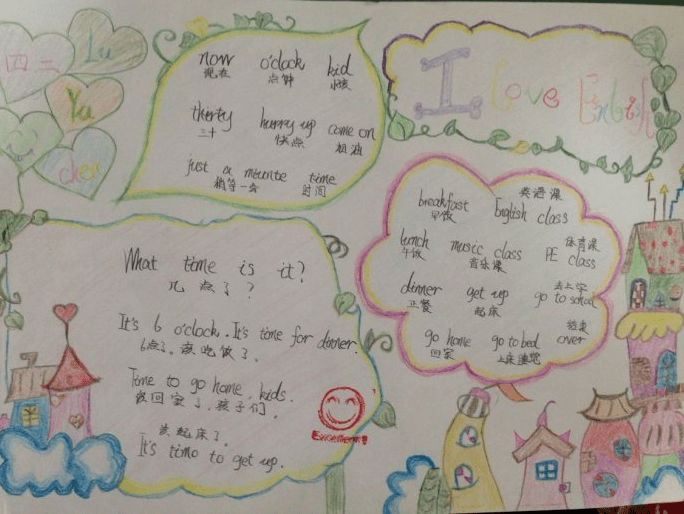 四二
Lu
Yu
chen
now o'clock kid
现在 点钟 小孩
thirty hurry up come on
三十 快点 加油
just a miunte time
稍等一会 时间
I love English
breakfast English class
早饭 英语课
lunch music class PE class
午饭 音乐课 体育课
dinner get up go to school
正餐 起床 去上学
go home go to bed over
回家 上床睡觉 结束
What time is it?
几点了?
It's 6 o'clock. It's time for dinner.
6点了。该吃饭了。
Time to go home, kids.
该回家了,孩子们。
该起床了。
It's time to get up.